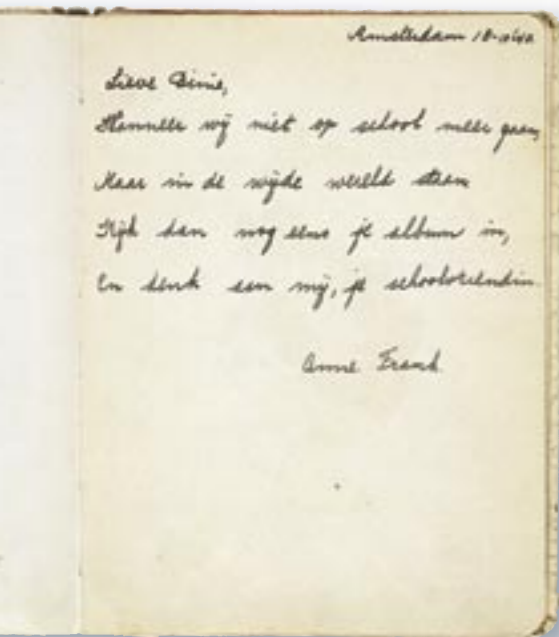 Amsterdam
Lieve Dinie,
Wanneer wij niet op school meer gaan,
Maar in de wijde wereld staan
Kijk dan nog eens je album in,
En denk aan mij, je schoolvriendin
Anne Frank.